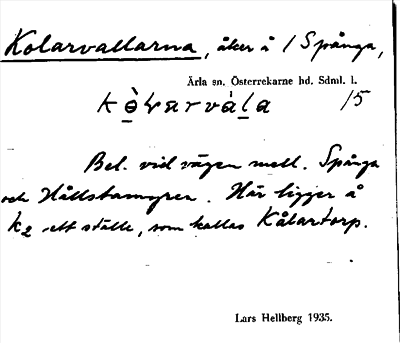 Kolarvallarna, åker å 1 Spånga,
Ärla sn. Österrekarne hd. Sdml. l.
15
Bel. vid vägen mell. Spånga
och Hållstamgren. Här ligger å
k2 ett ställe, som kallas Kålartorp.
Lars Hellberg 1935.